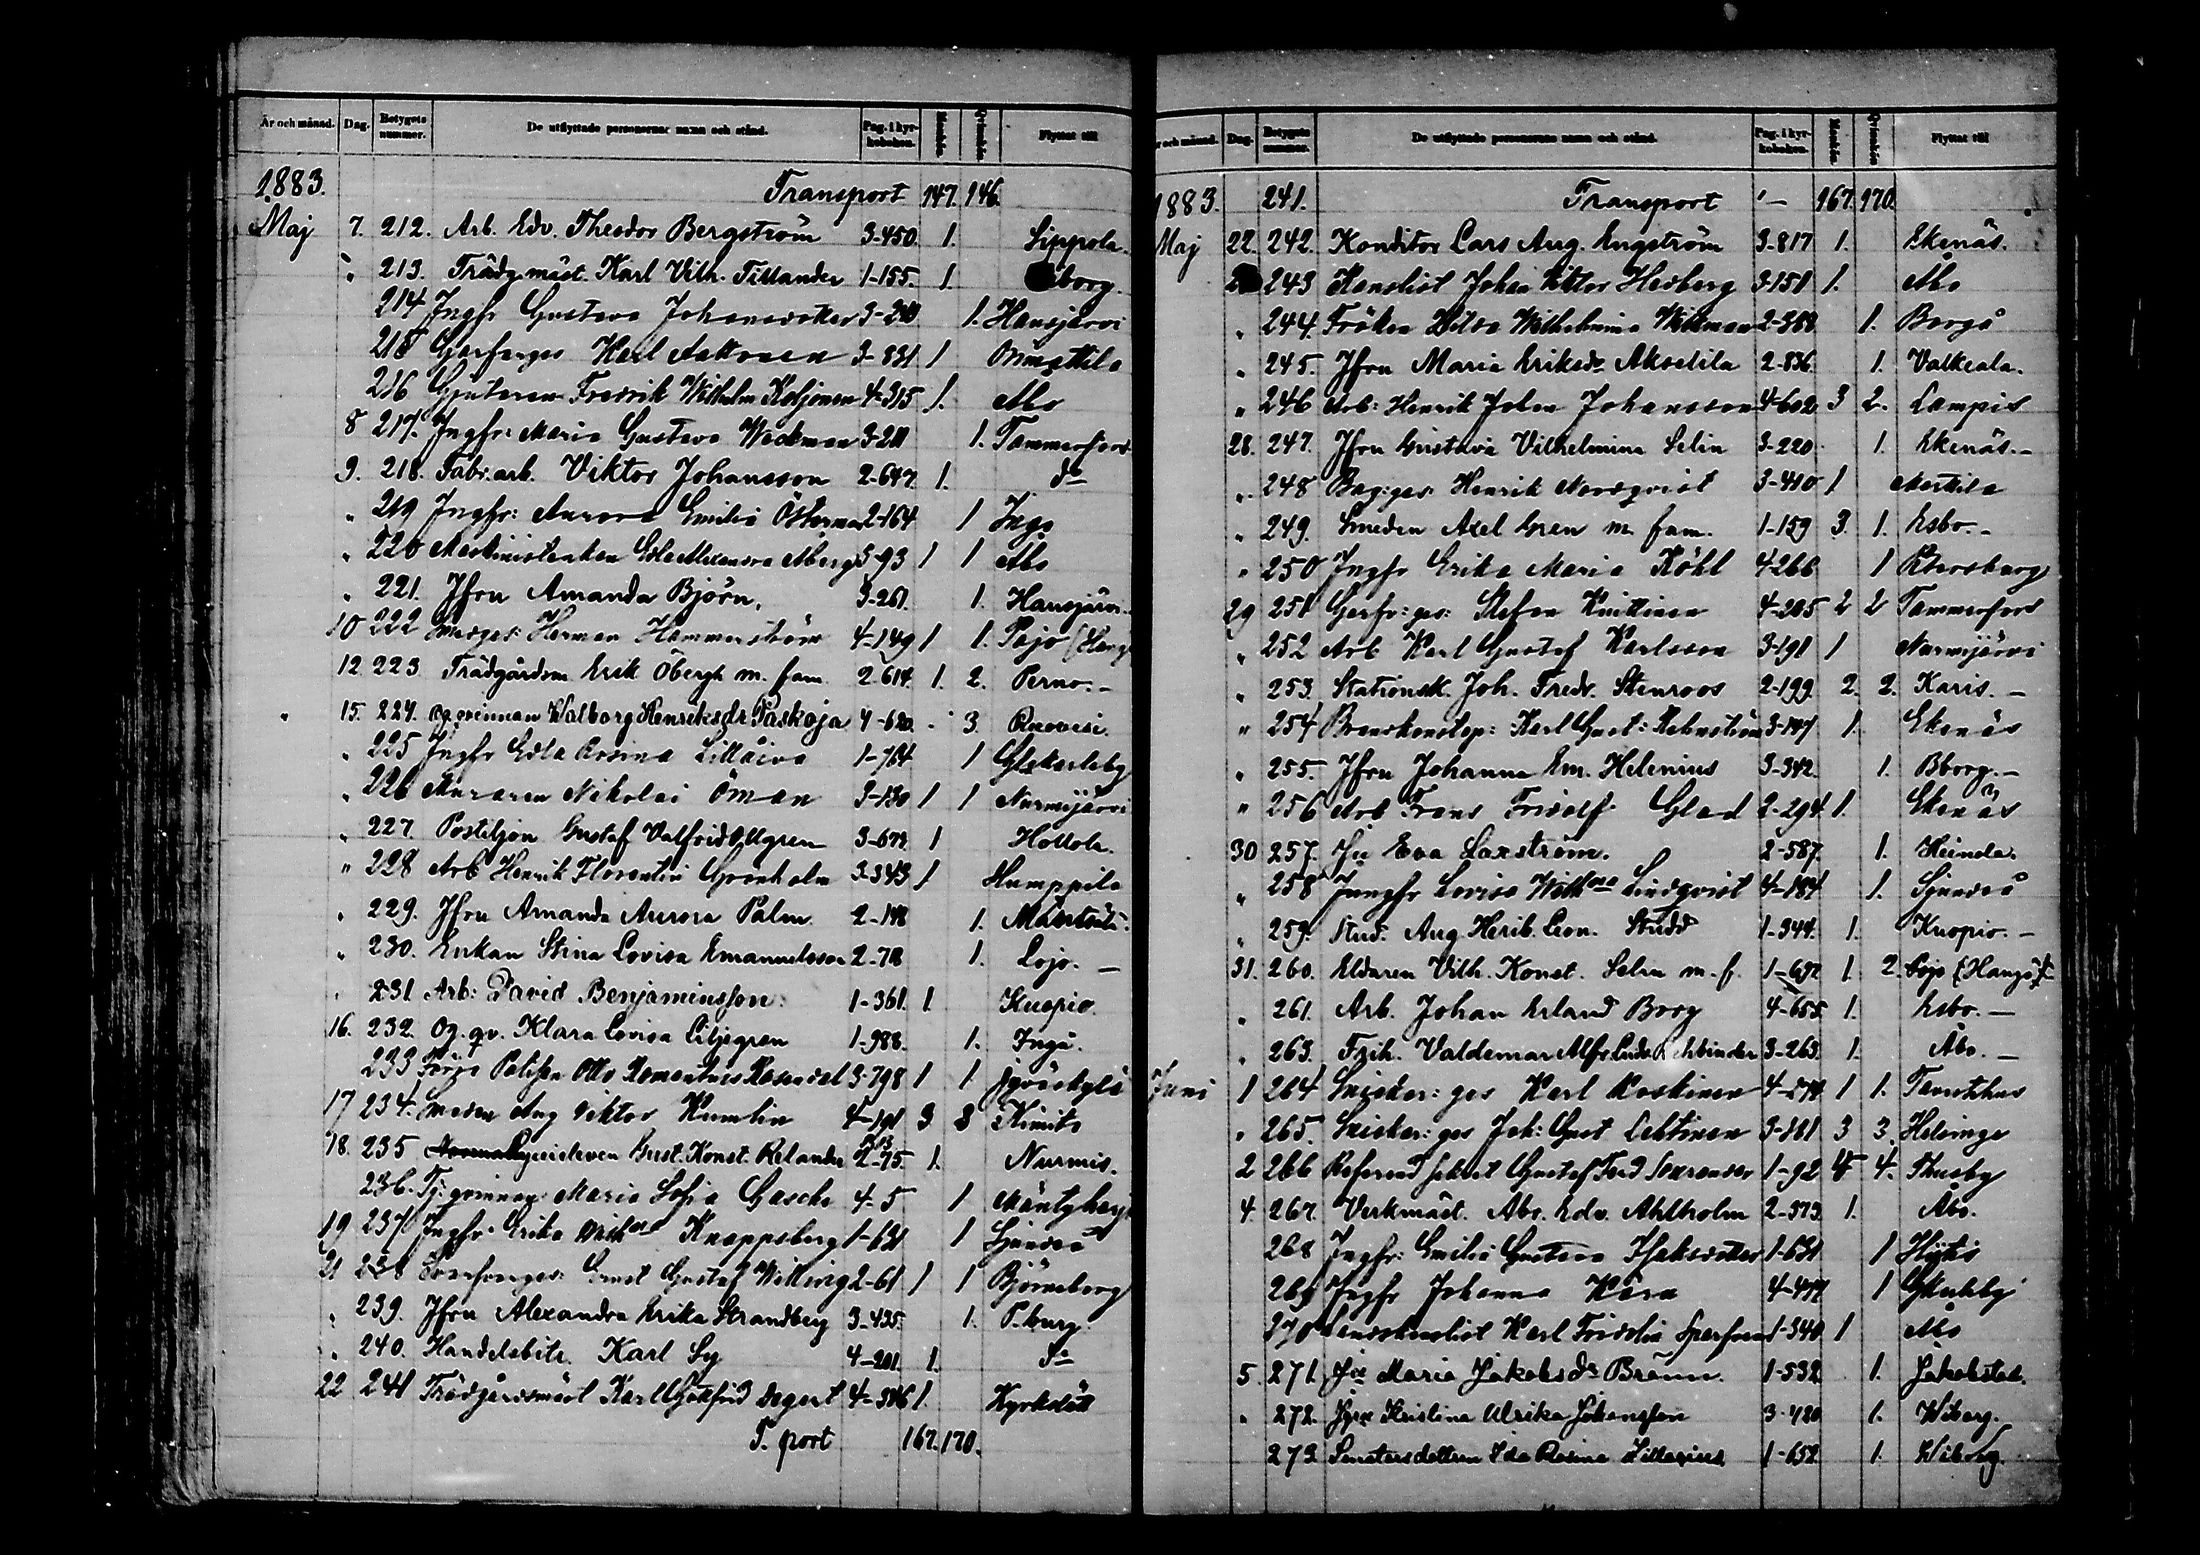 År och månad. Dag. Betygets nummer. De utflyttade personernas namn och stånd. Pag. i kyrkoboken. Mankön. Qvinkön. Flyttat till
1883. Transport 147. 146.
Maj 7. 212. Arb. Edv. Theodor Bergström 3-450. 1. Sippola.
" 213. Trädg.mäst. Karl Vilh. Tillander 1-155. 1. borg.
214 Jngfr Gustava Johansdotter 3- 1. Hausjärvi
215 Garfvarges Karl Anttonen 3-831 1 Orimattila
216 Gjutaren Fredrik Wilhelm Koljonen 4-315 1. Åbo
8 217. Jngfr: Maria Gustava Weckman 3-211 1. Tammerfors
9. 218. Fabr. arb. Viktor Johansson 2-647. 1. do
" 219 Jngfr: Aurora Emilia Österman 2-164 1 Ingå
" 220 Maskinistenkan Edla Alexandra Åberg 3-93 1 1 Åbo
" 221. Jfru Amanda Björn. 3-261. 1. Hausjärvi.
10 222 Smedges: Herman Hammarström 4-149 1 1. Pojo (Hang
12 223 Trädgårdsm Erik Öbergh m. fam. 2-614. 1. 2. Perno.-
15. 224. Og. qvinnan Walborg Henriksdr Paskoja 4-620. - 3. Ruovesi.
" 225 Jngfr Edla Rosina 1-764 1 Glkarleby
" 226 Muraren Nikolai Öman 3-130 1 1 Nurmijärvi
" 227. Postiljon Gustaf Valfrid Ullgren 3-672 1 Hollola.
" 228 Arb Henrik Florentin Grönholm 3-343 1 Humppila
" 229. Jfru Amanda Aurora Palm. 2-148 1.
" 230. Enkan Stina Lovisa Emanuelsson 2-78 1. Lojo. -
231. Arb: David Benjaminsson: 1-361. 1. Kuopio.
16. 232. Og. qv. Klara Lovisa Liljegren 1-988. 1. Ingå.
233 Otto Rosendal 3-798 1 1. Jyväskylä
17 234. Smeden Aug Viktor Kumlin 4-191 3 3 Kimito
18. 235 Lyceieleven Gust. Konst. Relander 2-75. 1. Nurmis.
236. Tj. qvinnan Maria Sofia Gasche 4-5 1 Mäntyharju
19 237. Jngfr: Erika Wilhna Knappsberg 1-631 1 Sjundeå
21 238 Ernst Gustaf Willvig 2-61 1 1 Björneborg
" 239. Jfru Alexandra Erika Strandberg 3-435. 1. P.burg.
" 240. Handelsbitr. Karl Ly 4-201. 1. do
22 241 Trädgårdsmäst Karl Gottfrid Degert 4-386 1. Kyrkslätt
T. port 167. 170.
År och månad. Dag. Betygets nummer. De utflyttade personernas namn och stånd. Pag. i kyrkoboken. Mankön. Qvinkön. Flyttat till
1883. 241. Transport 167. 170.
Maj 22. 242. Konditor Lars Aug. Engström 3-817 1. Ekenäs.
243 Kanslist Johan Viktor Hedberg 3-151 1. Åbo
" 244. Fröken Hilda Wilhelmina Wickman 2-388 1. Borgå
" 245. Jfru Maria Eriksdr Akselila 2-836 1. Valkeala.
" 246 Arb: Henrik Johan Johansson 4-602 3 2. Lampis
28. 247. Jfru Gustava Vilhelmina Selin 3-220 1. Ekenäs.-
" 248 Bag:ges. Henrik Nordqvist 3-410 1 Marttila
" 249. Smeden Axel Gren m. fam. 1-159 3. 1. Esbo.-
" 250 Jngfr Erika Maria Köhl 4-266 1 Petersburg
29 251 Garfv: ges: Stefan Knittinen 4-285 2 2 Tammerfors
" 252 Arb Karl Gustaf Karlsson 3-191 1 Nurmijärvi
" 253. Stationsk. Joh. Fredr. Stenroos 2-199. 2. 2. Karis.-
" 254 Brandkonstap: Karl Gust: Rehnström 3-147 1. Ekenäs
" 255. Jfru Johanna Em. Helenius 3-342. 1. Bborg.-
" 256 Arb Frans Fridolf Glad 2-294. 1. Ekenäs
30 257. Jfru Eva Laxström. 2-587. 1. Heinola.
" 258 Jungfr Lovisa Wilhna Lindqvist 4-184 1. Sjundeå
" 259. Stud. Aug. Herib. Leon. Studd 1-344. 1. Kuopio.-
31. 260. Eldaren Vilh. Konst. Selin m. f. 1-692 1. 2. Pojo (Hangö)
" 261. Arb. Johan Erland Borg 4-655 1. Esbo.-
" 263. Frih. Valdemar Alfr. Ludv. Rehbinder 3-263. 1. Åbo.-
Juni 1 264 Snickar: ges Karl Koskinen 4-574 1 1. Tavasthus
" 265. Snickar: ges Joh: Gust Lehtinen 3-881 3 3. Helsinge
2 266 Referend. sekret Gustaf Ferd 1-92 4 4. Thusby
4. 267. Verkmäst. Abr. Edv. Ahlholm 2-573. 1. Åbo.
268 Jngfr: Emilia Gustava Isaksdotter 1-631 1
269 Jngfr Johanna 4-477 1
270 Karl Fridolin 1-340 1 Åbo
5. 271. Jfr Maria Jakobsdr Bränn. 1-532. 1. Jakobstad.
" 272. Jgfr Kristina Ulrika Johansson 3-480 1. Wiborg.
273 Senatorsdottren Ida Rosina 1-652. 1. Wiborg.